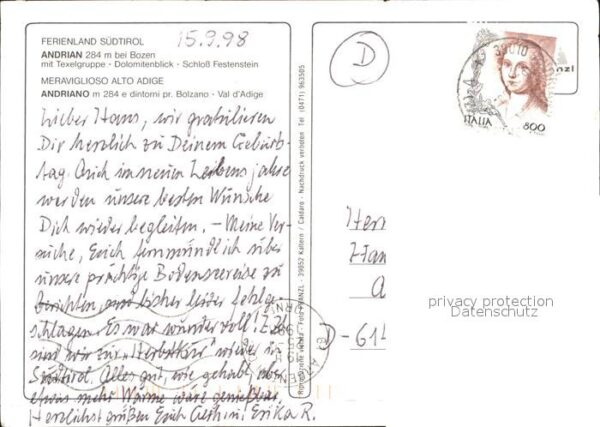 FERIENLAND SÜDTIROL
ANDRIAN 284 m bei Bozen
mit Texelgruppe · Dolomitenblick · Schloß Festenstein
MERAVIGLIOSO ALTO ADIGE
ANDRIANO m 284 e dintorni pr. Bolzano · Val d'Adige
15.9.98
Lieber Hans, wir gratulieren
Dir herzlich zu Deinem Geburts-
tag. Auch im neuen Lebensjahre
werden unsere besten Wünsche
Dich wieder begleiten. – Meine Ver-
suche, Euch fernmündlich über
unsere prächtige Bodenseereise zu
berichten, sind bisher leider fehlge-
schlagen. Es war wundervoll! Z.Zt.
sind wir zur "Herbstkur" wieder in
Südtirol. Alles gut, wie gehabt, aber
etwas mehr Wärme wäre genießbar.
Herzlichst grüßen Euch Erika R.
39052 Kaltern / Caldaro - Nachdruck verboten Tel. (0471) 963505
D
39010
ITALIA 800
nzl
Her
Han
D-614
privacy protection
Datenschutz